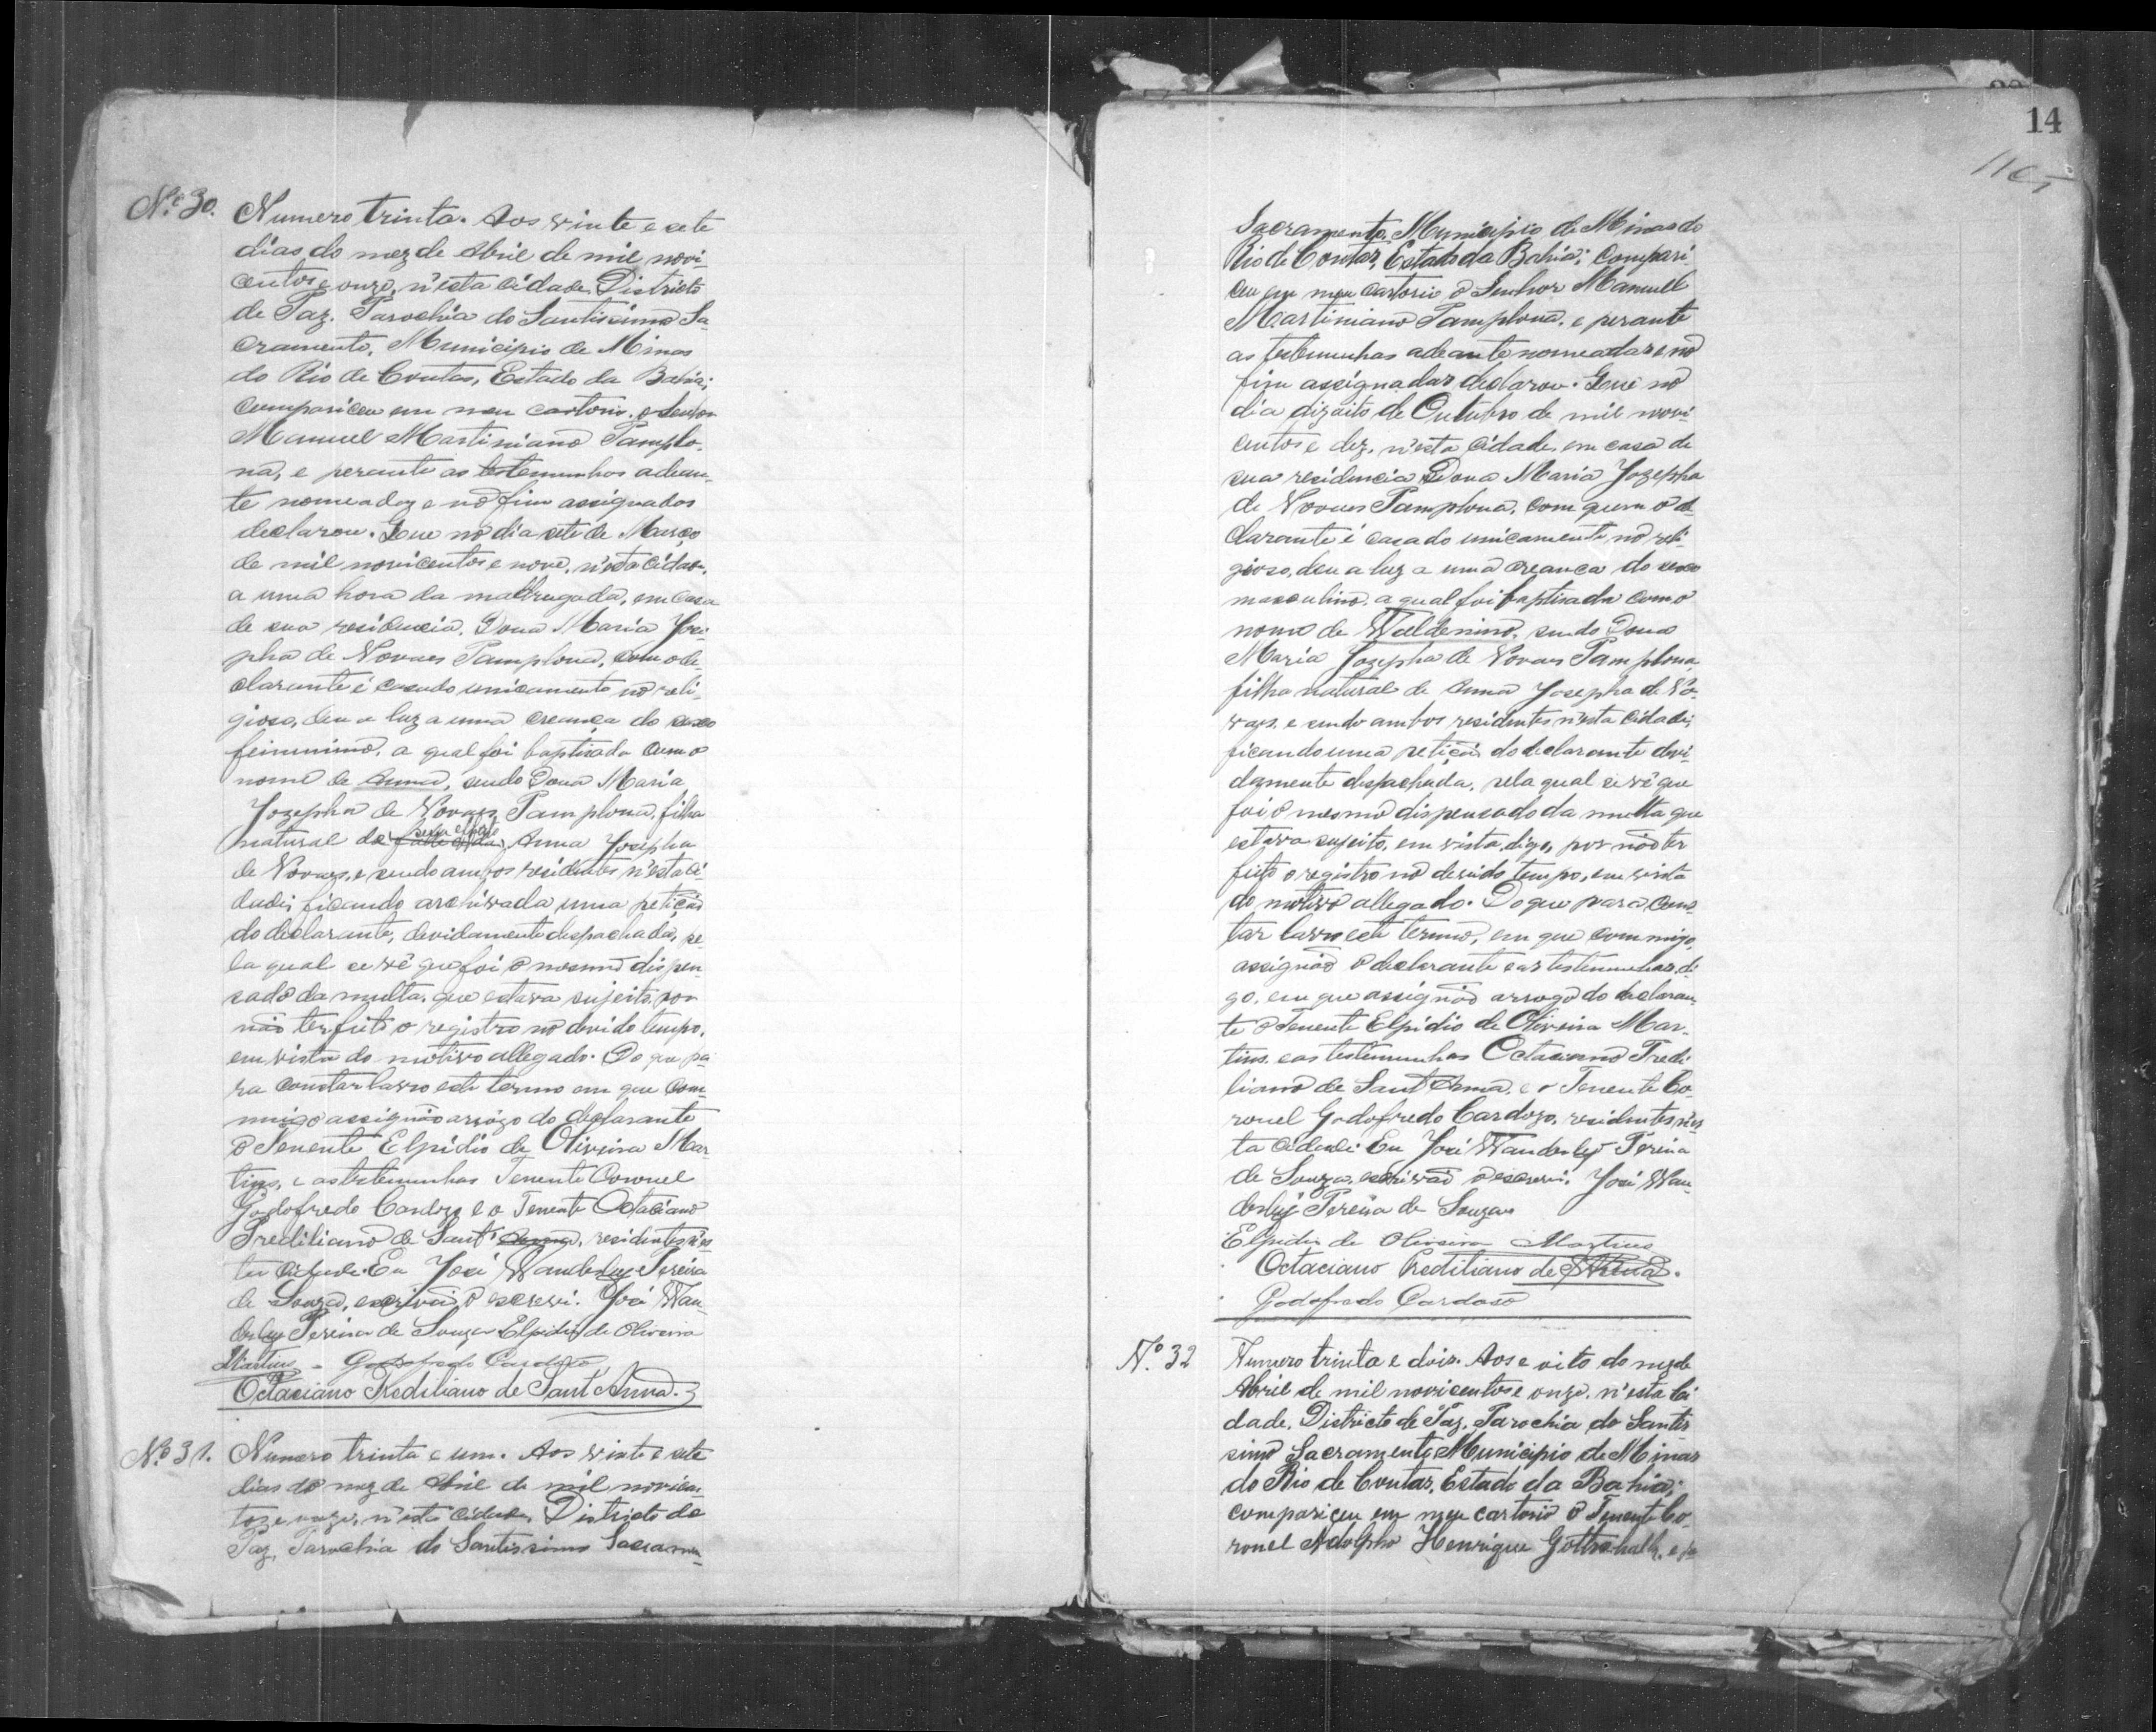 Nº 30. Numero trinta. Aos vinte e sete
dias do mez de Abril de mil novi-
centos e onze, n'esta Cidade, Districto
de Paz, Parochia do Santissimo Sa-
cramento, Municipio de Minas
do Rio de Contas, Estado da Bahia;
compariceu em meu cartorio, o Senhor
Manuel Martiniano Pamplo-
na, e perante as testemunhas adean-
te nomeadas e no fim assignados
declarou. Que no dia sete de Março
de mil novicentos e nove, n'esta Cidade,
a uma hora da madrugada, em casa
de sua residencia, Dona Maria Jose-
pha de Novaes Pamplona, com o de-
clarante é casado unicamente no reli-
gioso, deu a luz a uma creança do sexo
feminino, a qual foi baptisada com o
nome de Anna, sendo Dona Maria
Jozepha de Novaes Pamplona, filha
natural de Anna Josepha
de Novaes, e sendo ambos residentes n'esta Ci-
dade; ficando archivada uma petição
do declarante, devidamente despachada, pe-
la qual se vê que foi o mesmo dispen-
sado da multa, que estava sujeito, por
não ter feito o registro no devido tempo,
em vista do motivo allegado. Do que pa-
ra constar lavro este termo em que com-
migo assignão arrogo do declarante
o Tenente Elpidio de Oliveira Mar-
tins, e as testemunhas Tenente Coronel
Godofredo Cardozo e o Tenente Octaciano
Prediliano de Sant' Anna, residentes n'es-
ta Cidade. Eu José Wanderley Pereira
de Souza, escrivão o escrevi. José Wan-
derley Pereira de Souza Elpidio de Oliveira
Martins - Godofredo Cardoso
Octaciano Prediliano de Sant'Anna.
Nº 31. Numero trinta e um. Aos vinte e sete
dias do mez de Abril de mil novicen-
tos e onze, n'esta Cidade, Districto de
Paz, Parochia do Santissimo Sacramen-
14
Sacramento, Municipio de Minas do
Rio de Contas, Estado da Bahia; compari-
ceu em meu cartorio o Senhor Manuel
Martiniano Pamplona, e perante
as testemunhas adeante nomeadas e no
fim assignadas declarou. Que no
dia dizoito de Outubro de mil novi-
centos e dez, n'esta Cidade, em casa de
sua residencia Dona Maria Jozepha
de Novaes Pamplona, com quem o de-
clarante é casado unicamente no reli-
gioso, deu a luz a uma creança do sexo
masculino, a qual foi baptisada com o
nome de Waldemiro, sendo Dona
Maria Jozepha de Novaes Pamplona,
filha natural de Anna Josepha de No-
vaes, e sendo ambos residentes n'esta Cidade;
ficando uma petição do declarante devi-
damente despachada, pela qual se vê que
foi o mesmo dispensado da multa que
estava sujeito, em vista, digo, por não ter
feito o registro no devido tempo, em vista
do motivo allegado. Do que para cons-
tar lavro este termo, em que commigo
assignão o declarante e as testemunhas, di-
go, em que assignão arrogo do declaran-
te o Tenente Elpidio de Oliveira Mar-
tins, e as testemunhas Octaciano Predi-
liano de Sant'Anna, e o Tenente Co-
ronel Godofredo Cardozo, residentes n'es-
ta Cidade. Eu José Wanderley Pereira
de Souza, escrivão o escrevi. José Wan-
derley Pereira de Souza
Elpidio de Oliveira Martins
Octaciano Prediliano de
Godofredo Cardoso
Nº 32 Numero trinta e dois. Aos e oito do mez de
Abril de mil novicentos e onze, n'esta Ci-
dade, Districto de Paz, Parochia do Santis-
simo Sacramento, Municipio de Minas
do Rio de Contas, Estado da Bahia;
compariceu em meu cartorio o Tenente Co-
ronel Adolpho Henrique Gottschalk, e pe-